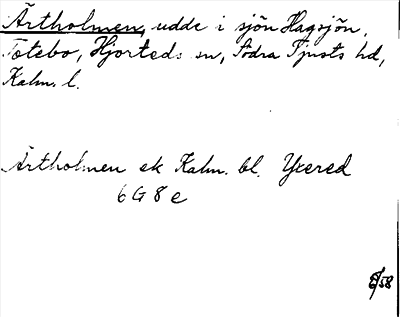 Ärtholmen, udde i sjön Hagsjön,
Totebo, Hjorteds sn, Södra Tjusts hd,
Kalm. l.
Ärtholmen ek Kalm. bl. Yxered
6 G 8 e
/58